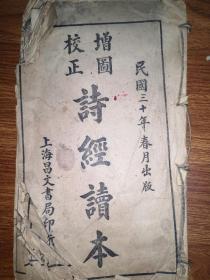 民國三十年春月出版
增圖
校正
詩經讀本
上海昌文書局印行